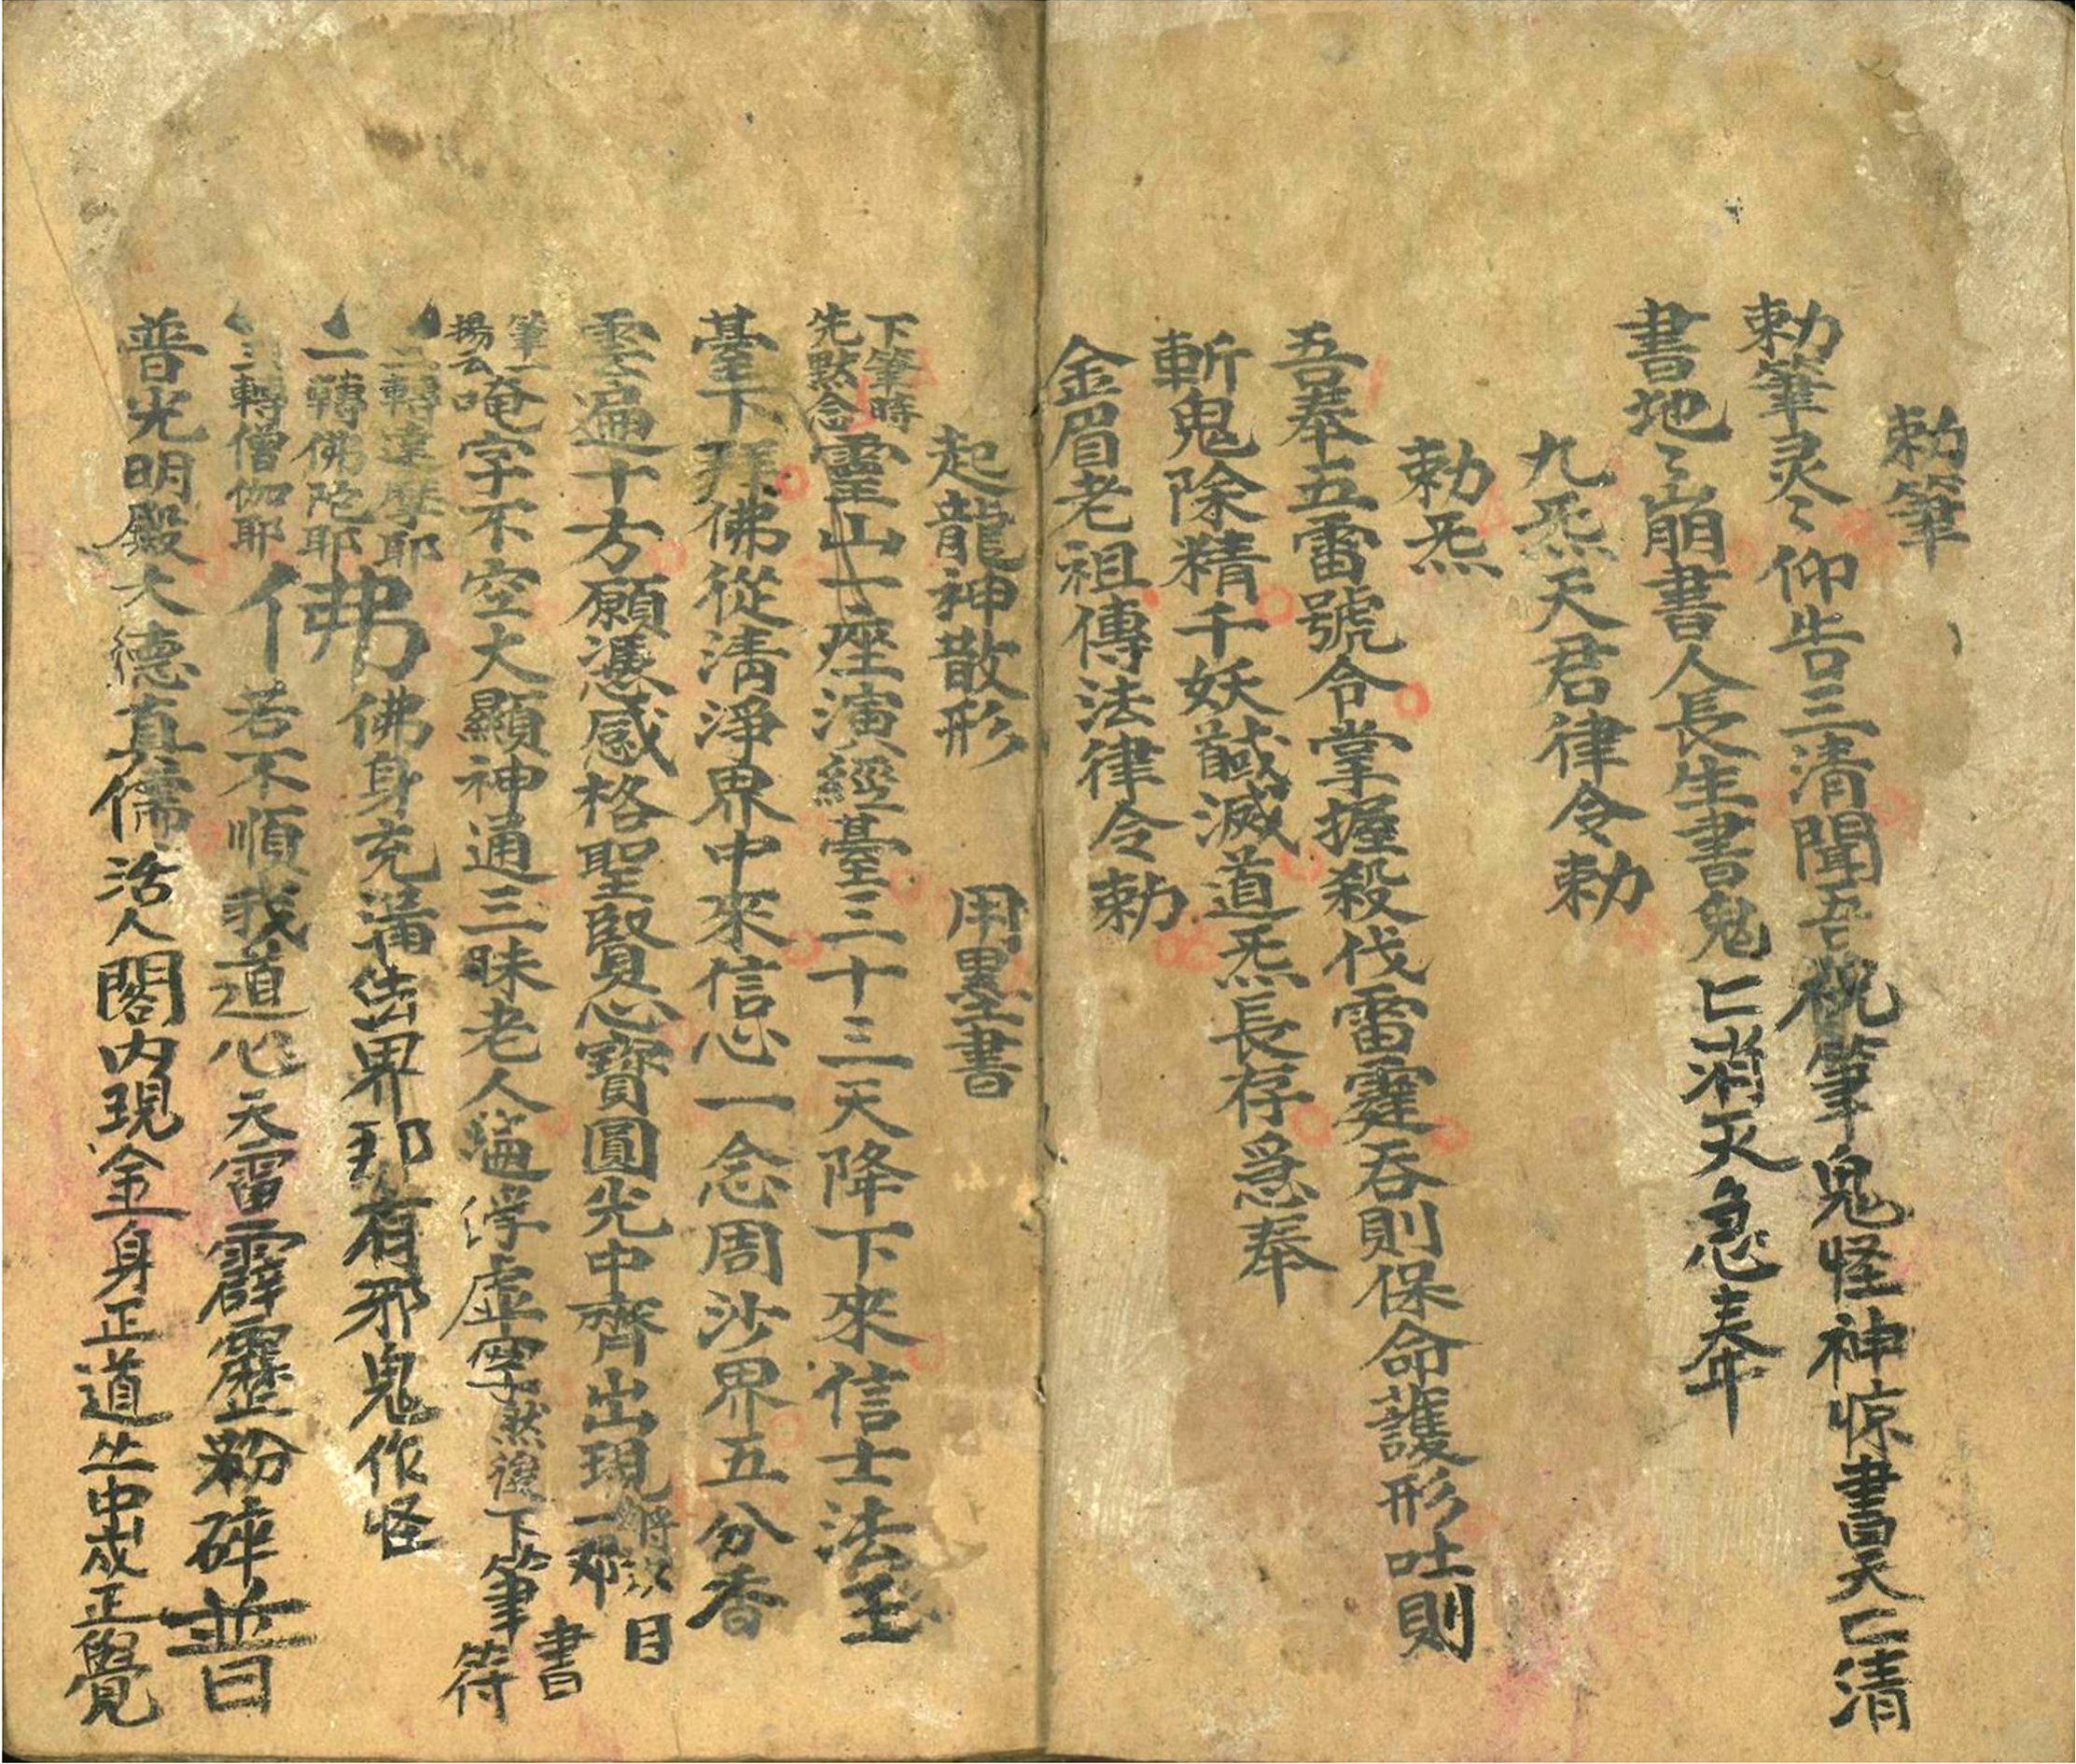 勅筆
勅筆灵〻仰告三清聞吾祝筆鬼怪神惊書天匕清
書地〻崩書人長生書鬼匕消灭急奉
九炁天君律令勅
勅炁
吾奉五雷號令掌握殺伐雷霆吞則保命護形吐則
斬鬼除精千妖馘滅道炁長存急奉
金眉老祖傳法律令勅
起龍神散形 用墨書
下筆時
先默念
靈山一座演經臺三十三天降下來信士法玉
臺下拜佛從清淨界中來信心一念周沙界五分香
雲遍十方願憑感格聖賢心寶圓光中齊出現
目
筆一
揚云
唵字不空大顯神通三昧老人遍浮虛空然後下筆
書
符
二轉達摩耶
一轉佛陀耶
三轉僧伽耶
佛
佛身充滿法界那有邪鬼作怪
若不順我道心天雷霹靂粉碎普
普光明殿大德真儒活人閣内現金身正道竺中成正覺